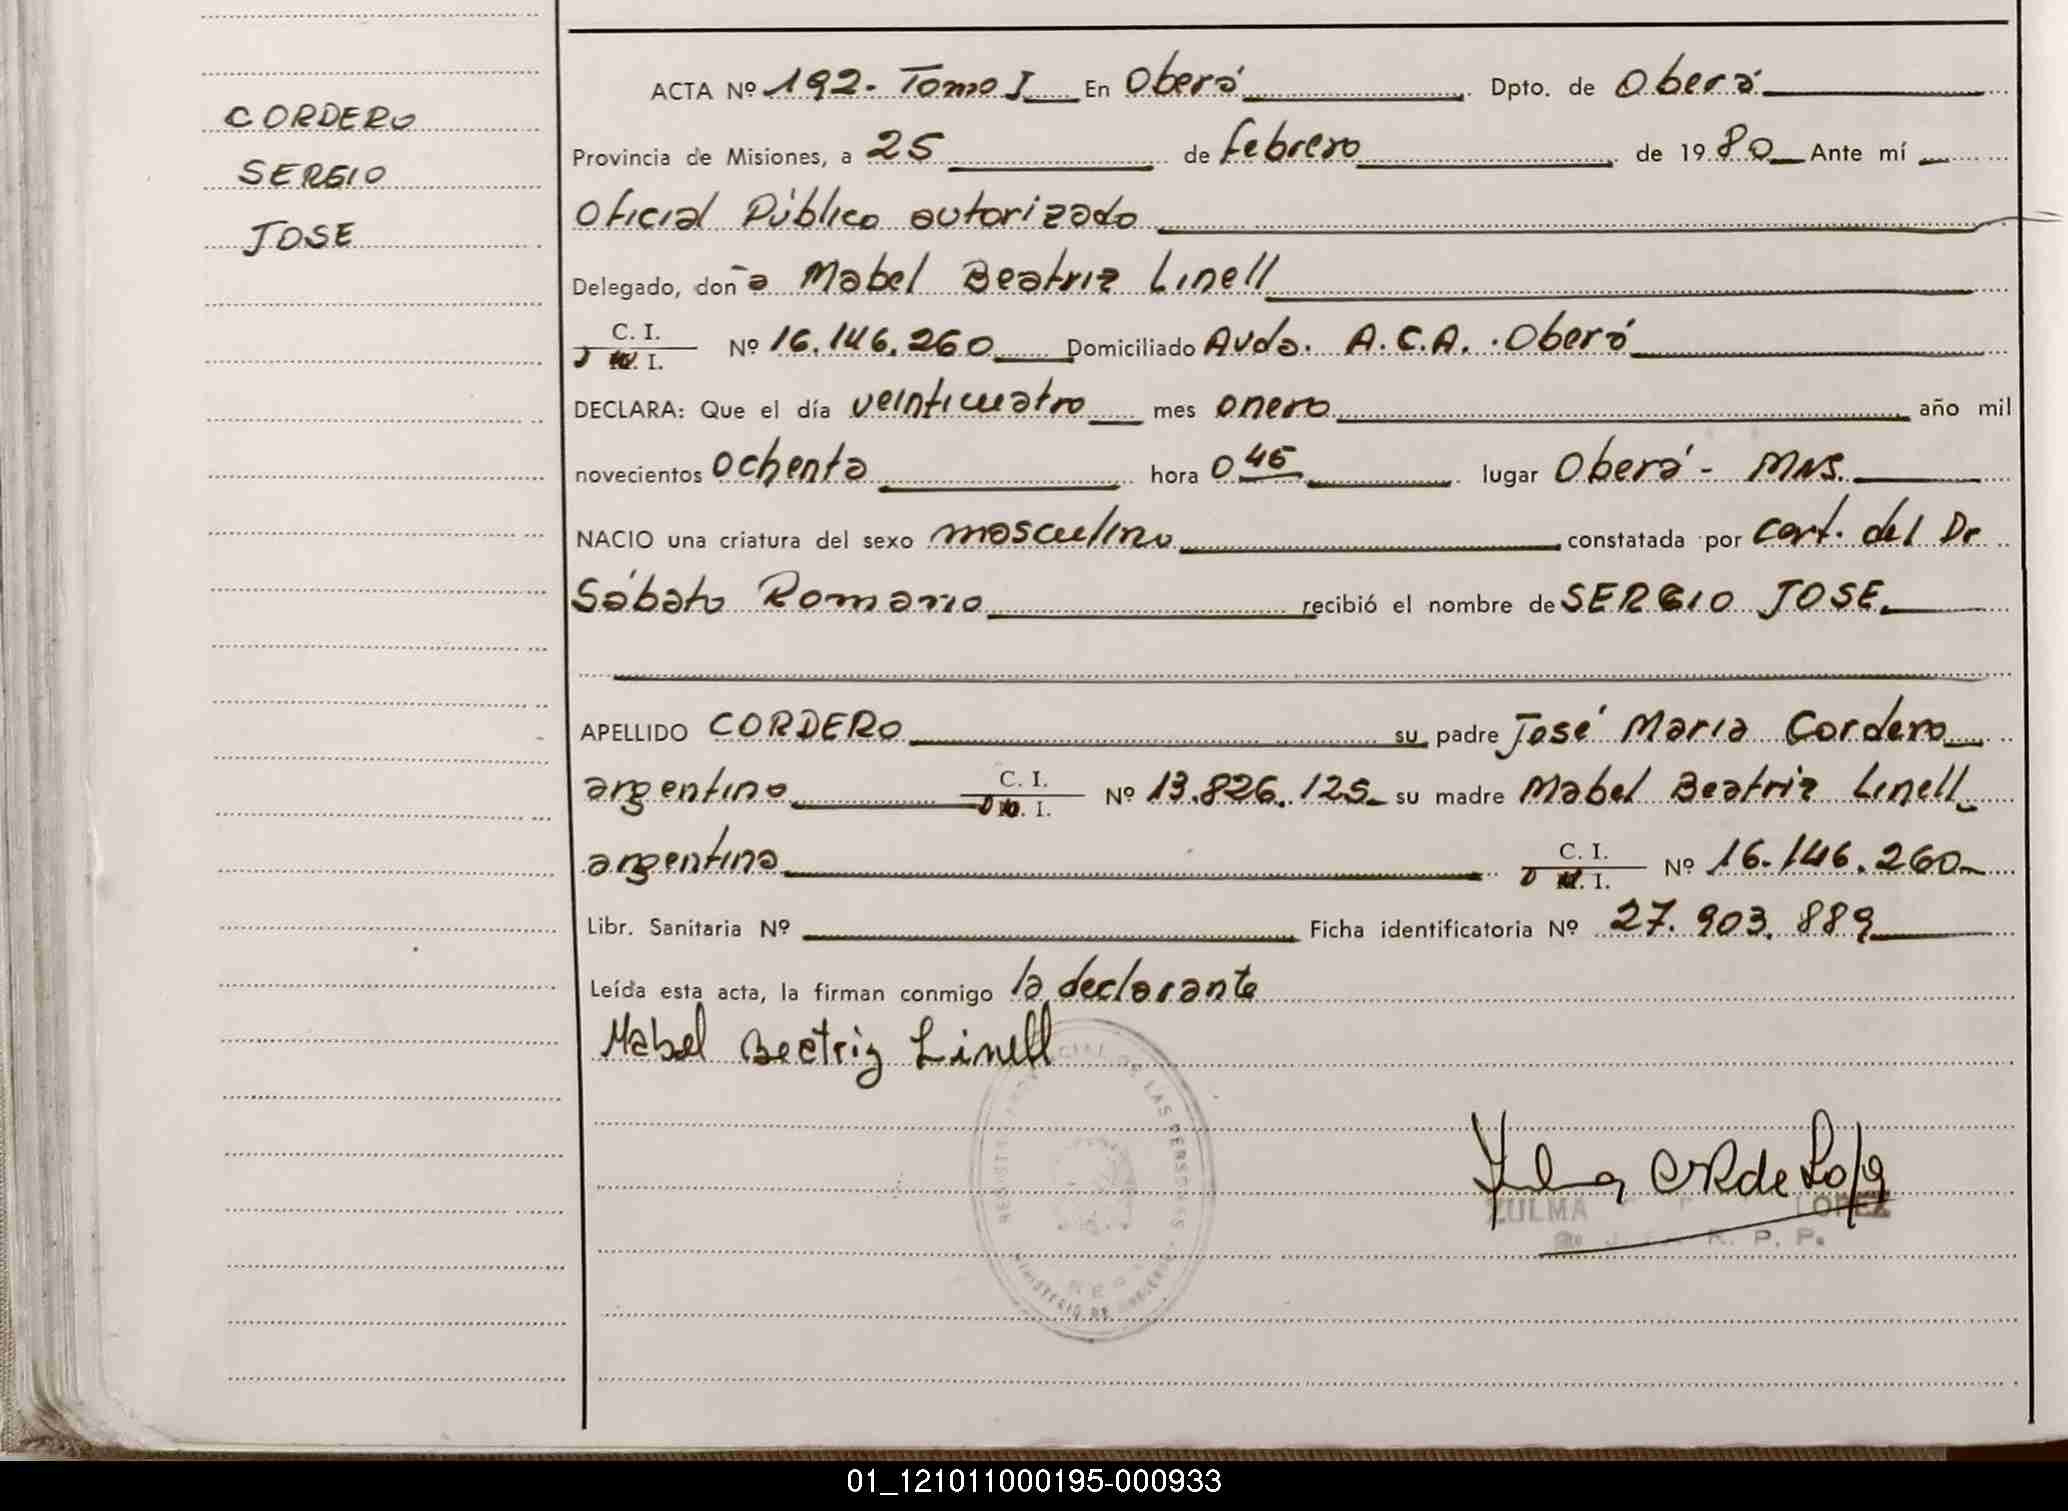 CORDERO
SERGIO
JOSE
ACTA Nº 192. Tomo I En Oberá Dpto. de Oberá
Provincia de Misiones, a 25 de febrero de 1980 Ante mí
Oficial Público autorizado
Delegado, doña Mabel Beatriz Linell
C. I.
D. N. I. Nº 16.146.260 Domiciliado Avda. A.C.A. Oberá
DECLARA: Que el día veinticuatro mes enero año mil
novecientos ochenta hora 0 45 lugar Oberá - MNS.
NACIO una criatura del sexo masculino constatada por cert. del Dr
Sábato Romano recibió el nombre de SERGIO JOSE.
APELLIDO CORDERO su padre José Maria Cordero
argentino C. I. D. N. I. Nº 13.826.125 su madre Mabel Beatriz Linell
argentina C. I. D. N. I. Nº 16.146.260
Libr. Sanitaria Nº Ficha identificatoria Nº 27.903.889
Leída esta acta, la firman conmigo la declarante
Mabel Beatriz Linell
ZULMA LOPEZ
R. P. P.
01_121011000195-000933